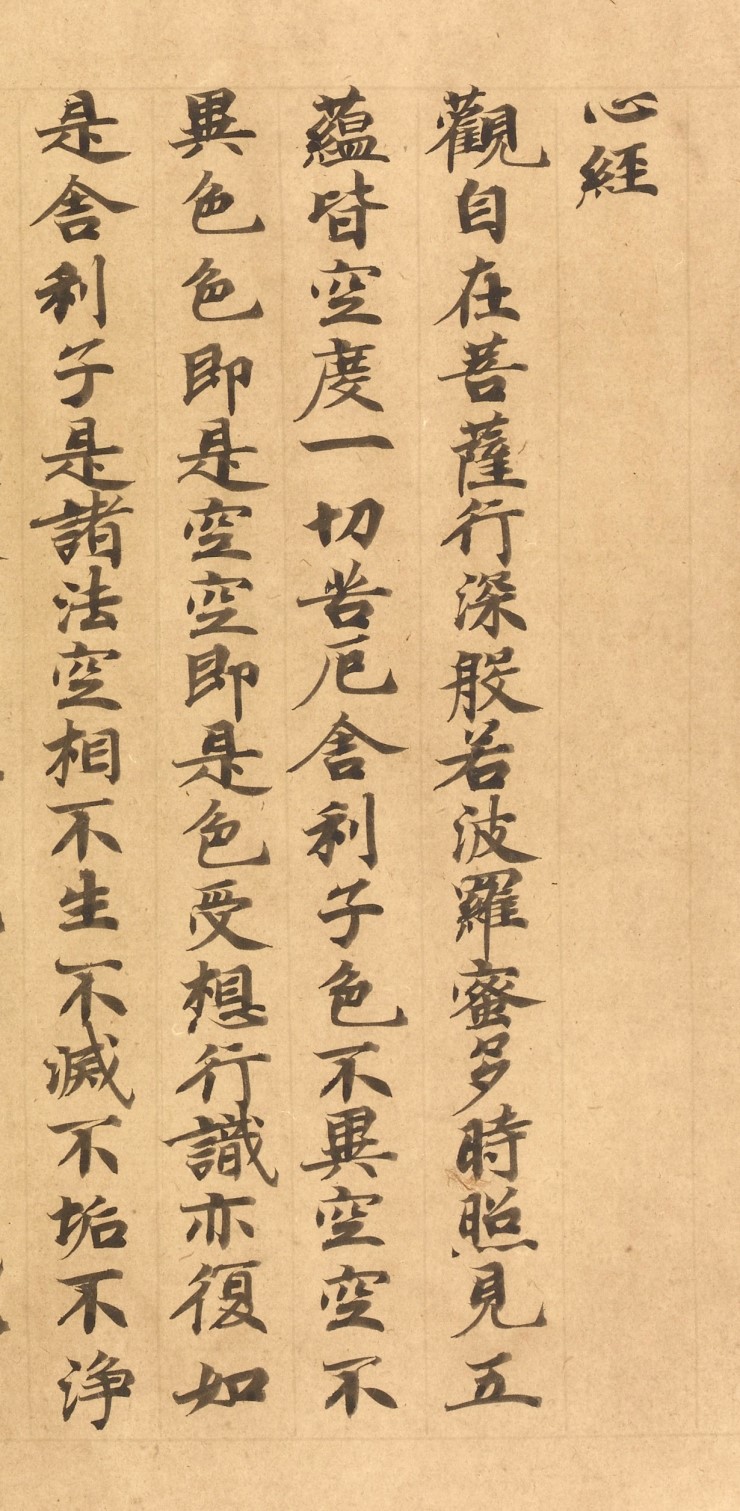 心經
觀自在菩薩行深般若波羅蜜多時照見五
蘊皆空度一切苦厄舍利子色不異空空不
異色色即是空空即是色受想行識亦復如
是舍利子是諸法空相不生不滅不垢不淨